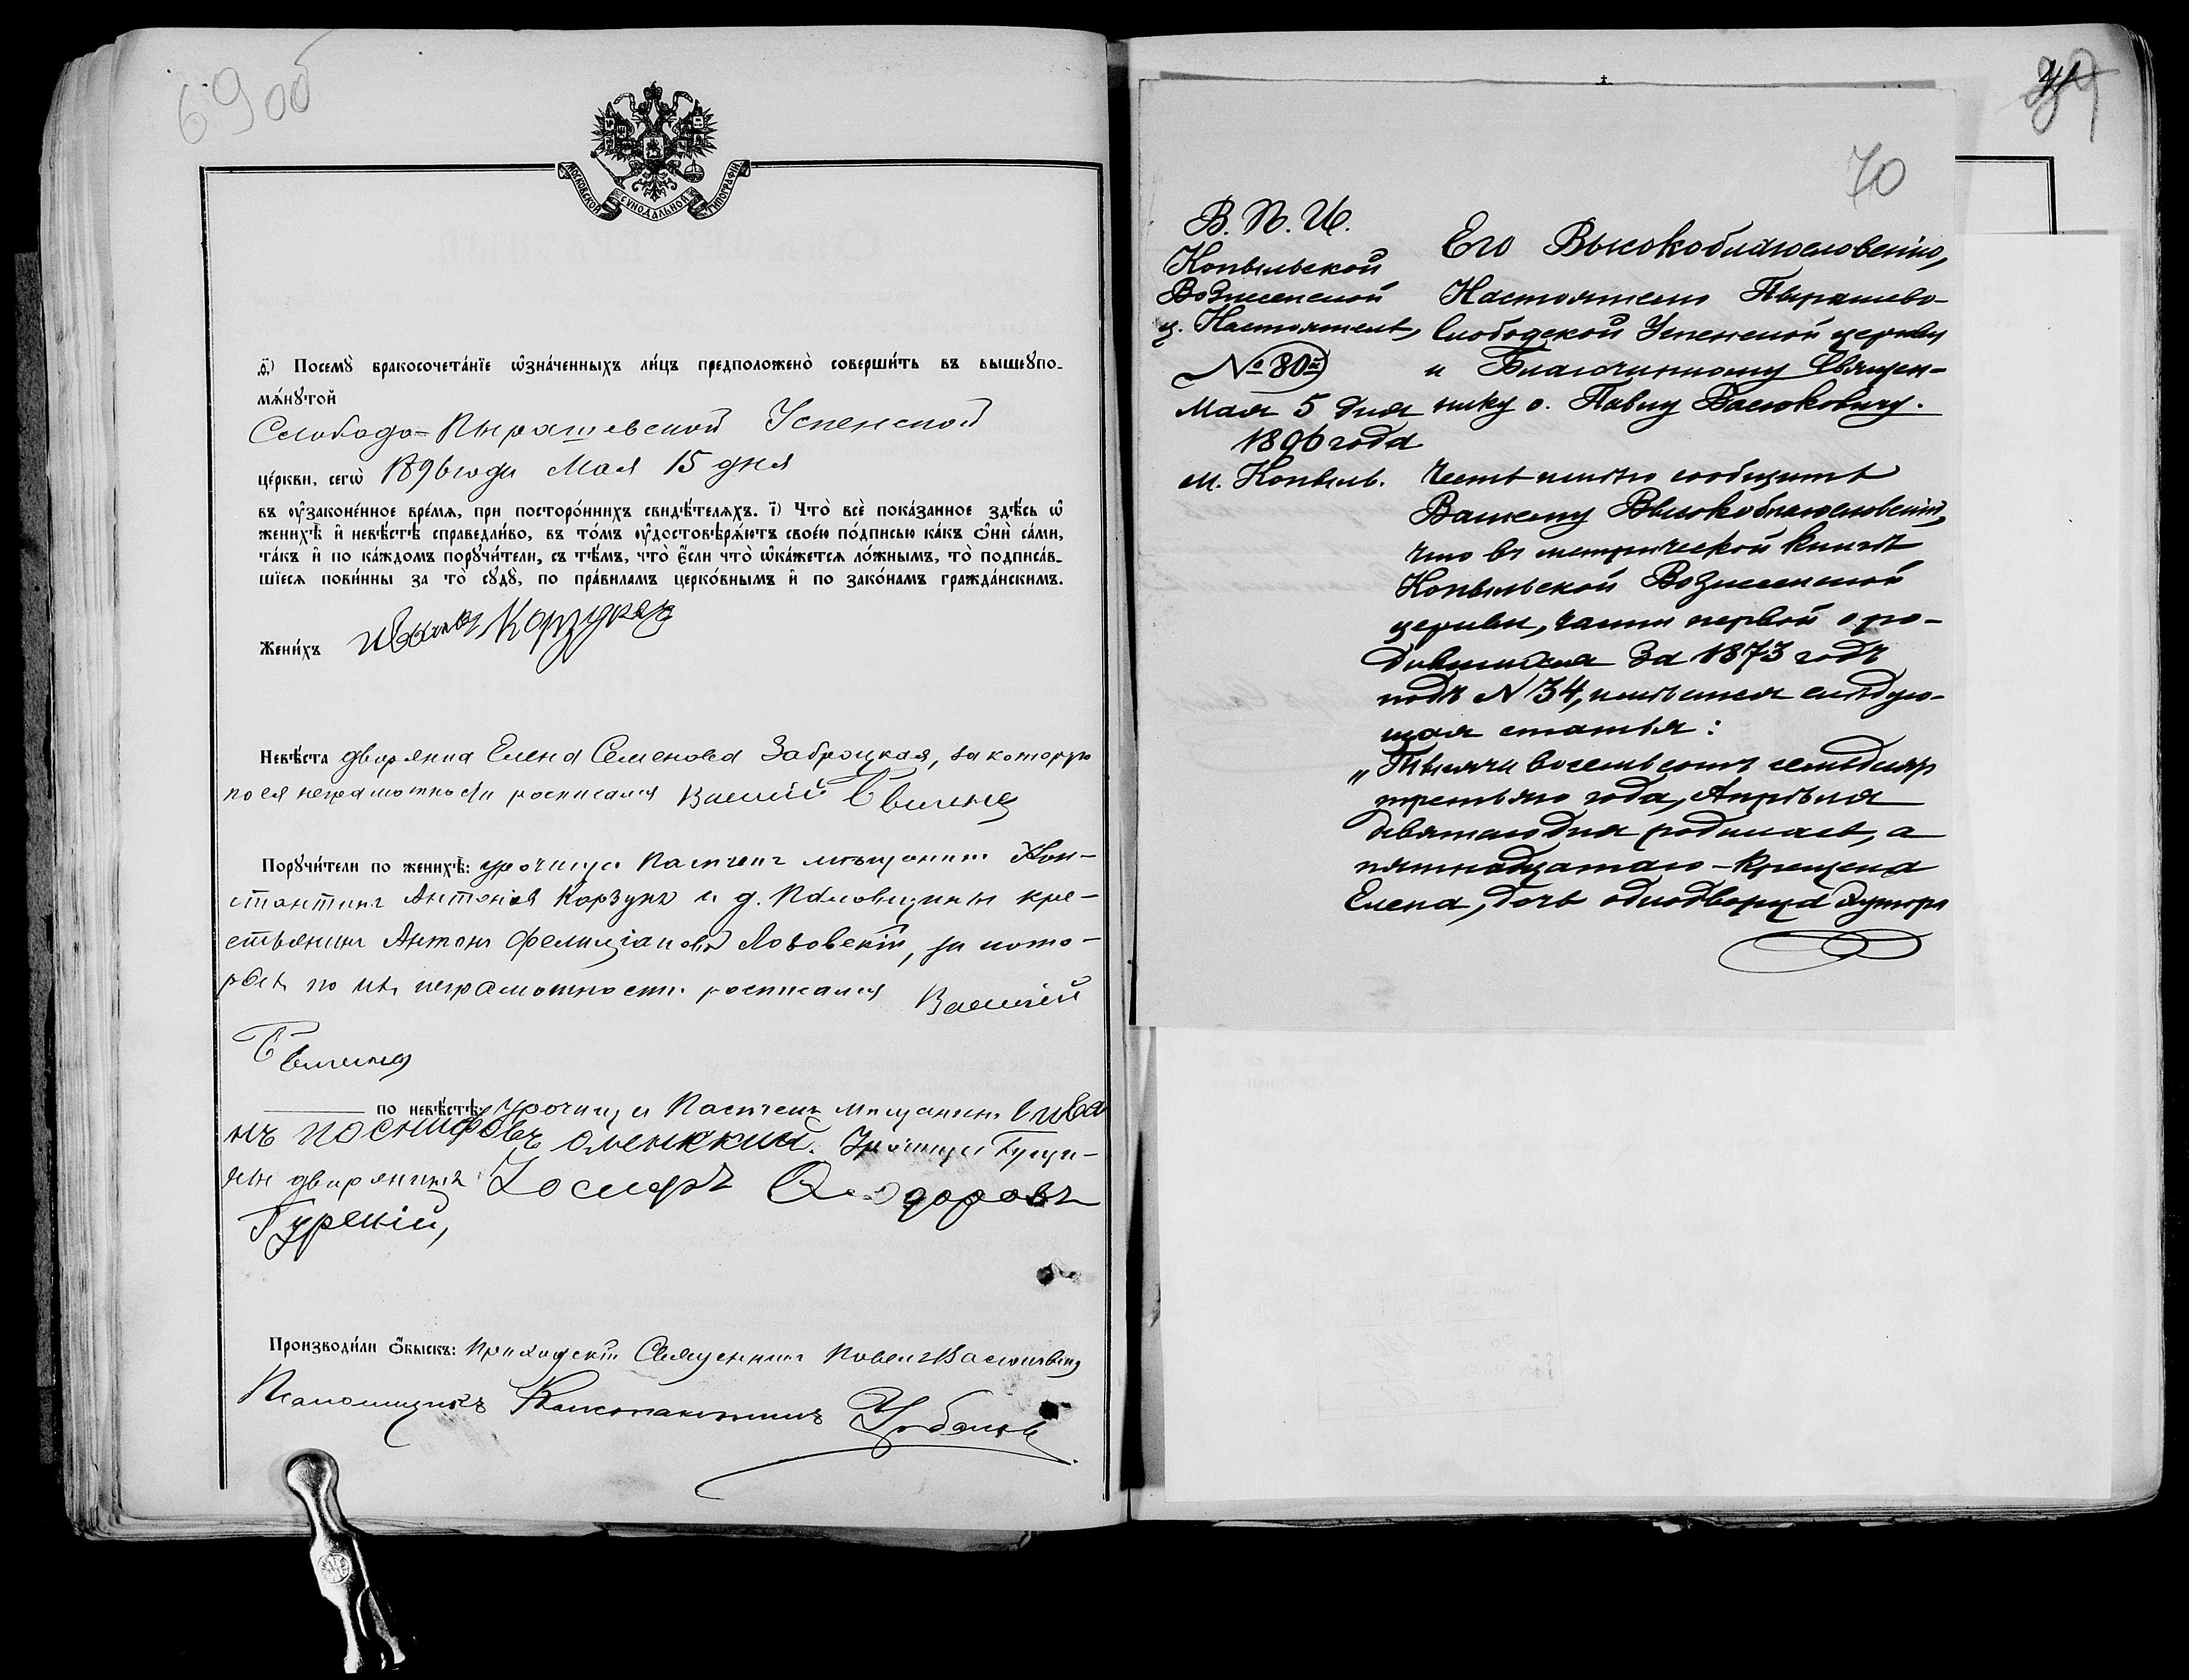 69 об
МОСКОВСКОЙ СѴНОДАЛЬНОЙ ТИПОГРАФІИ
Посемꙋ̀ бракосочета́нїе ѡ҆зна́ченныхъ ли́цъ предположено̀ соверши́ть въ вышеꙋпо-
мѧ́нꙋтой
Слободо-Пырашевской Успенской
це́ркви, сегѡ̀ 1896 года Мая 15 дня
въ ᲂу҆зако́ненное вре́мѧ, при посторо́ннихъ свидѣ́телѧхъ. і҃) Что̀ всѐ пока́занное здѣ́сь ѡ҆
женихѣ̀ и҆ невѣ́стѣ справедли́во, въ то́мъ ᲂу҆достовѣрѧ́ютъ свое́ю по́дписью ка́къ ѻ҆нѝ са́ми,
та́къ и҆ по ка́ждомъ порꙋчи́тели, съ тѣ́мъ, что̀ є҆́сли что̀ ѡ҆ка́жетсѧ ло́жнымъ, то̀ подписа́в-
шїесѧ пови́нны за то̀ сꙋдꙋ̀, по пра́виламъ церко́внымъ и҆ по зако́намъ гражда́нскимъ.
Жени́хъ Иванъ Корзунъ
Невѣ́ста дворянка Елена Семенова Заброцкая, за которую
по ея неграмотности росписался Василій
Порꙋчи́тели по женихѣ̀: урочища мѣщанинъ Кон-
стантинъ Антоновъ Корзунъ и д. кре-
стьянинъ Антонъ Фелиціановъ Лозовскій, за кото-
рыхъ по ихъ неграмотности росписался Василій
по невѣ́стѣ: урочища мѣщанинъ Ива
нъ Урочища
дворянинъ Іосифъ Ѳеодоровъ
Гурскій,
Производи́ли ѻ҆́быскъ: Приходскій Священникъ Павелъ Васюковичъ
Псаломщикъ Константинъ
70
В. П. И.
Копыльской
Вознесенской
ц. Настоятель,
№ 80й
Мая 5 дня
1896 года
м. Копыль.
Его Высокоблагословенію,
Настоятелю Пырашево-
Слободской Успенской церкви
и Благочинному Священ-
нику о. Павлу Васюковичу.
Честь имѣю сообщить
Вашему Высокоблагословенію,
что въ метрической книгѣ
Копыльской Вознесенской
церкви, части первой о ро-
дившихся за 1873 годъ
подъ N 34, имѣется слѣдую-
щая статья:
„Тысяча восемьсотъ семьдесятъ
третьяго года, Апрѣля
девятаго дня родилась, а
пятнадцатаго - крещена
Елена, дочь однодворца